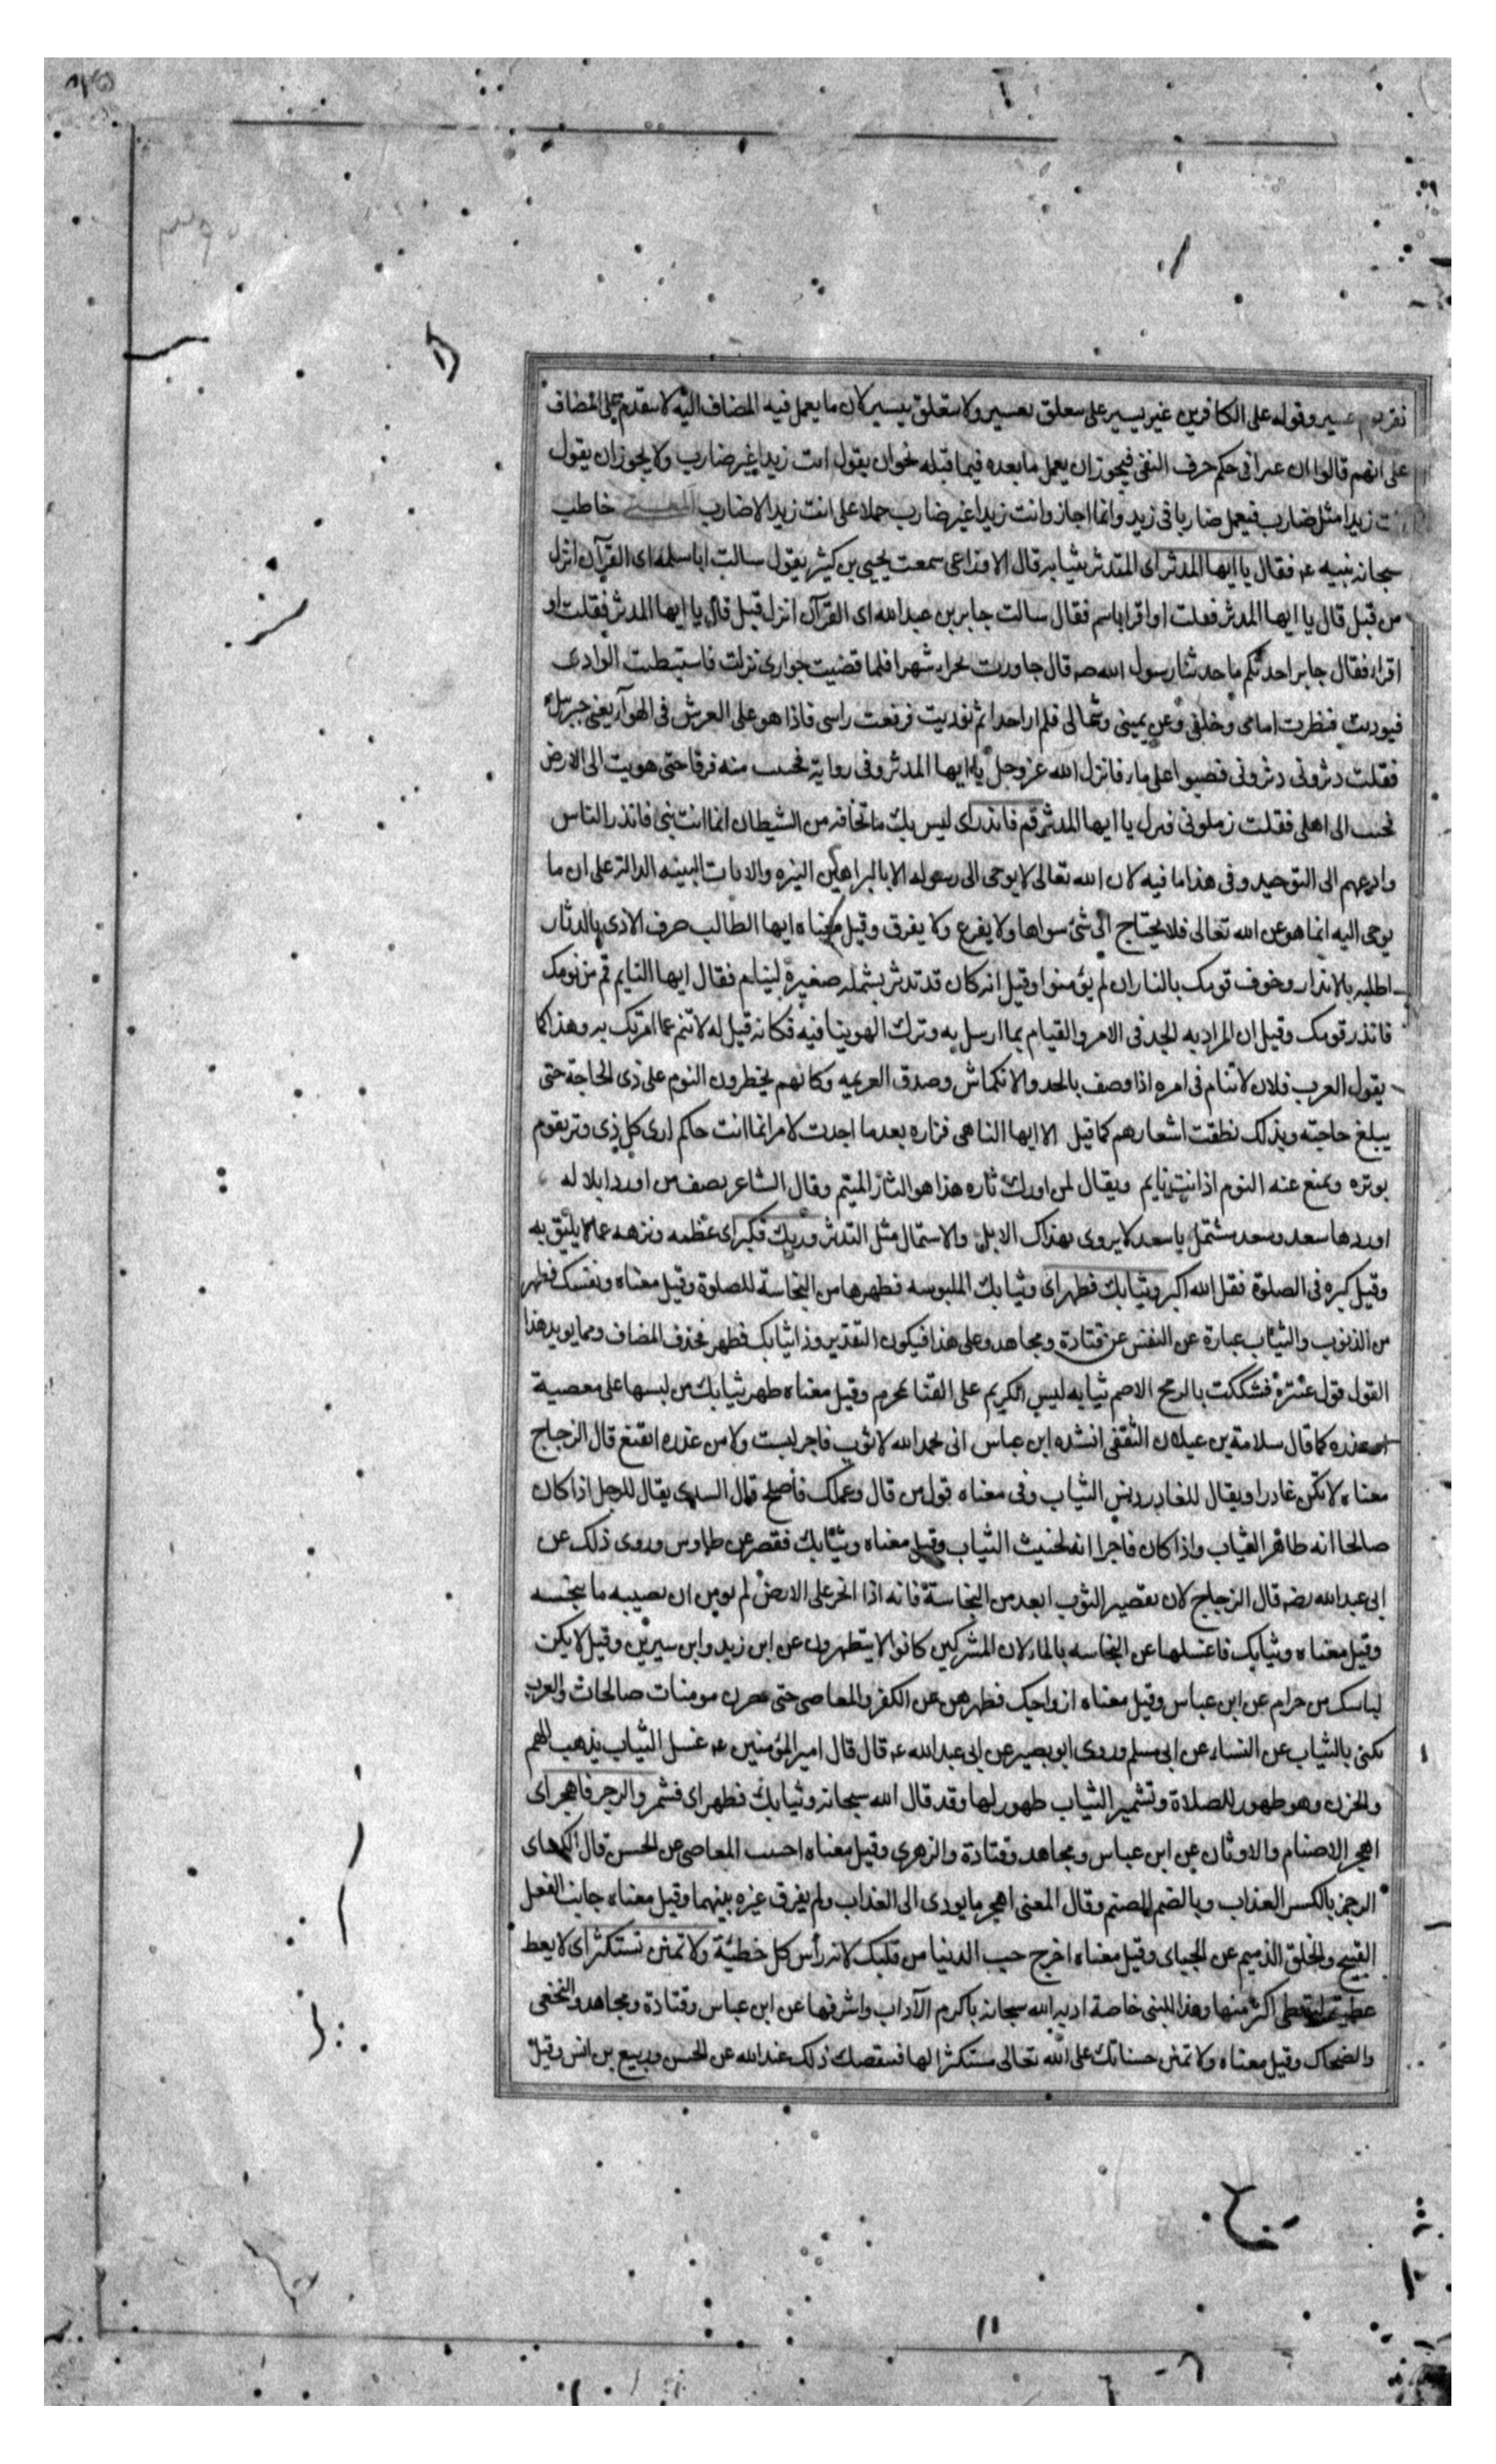 عسير وقوله على الكافرين غير يسير على سعلق بعسير ولا ستعلق بيسير لان ما يعمل فيه المضاف اليه لا سقدم على المضاف
على انهم قالوا ان غيرا فى حكم حرف النفى فيجوز ان يعمل ما بعده فيما قبله نحو ان يقول انت زيدا غير ضارب ولا يجوز ان يقول
زيدا مثل ضارب فيعمل ضاربا فى زيد وانما اجاز وانت زيدا غير ضارب حملا على انت زيد الاضارب خاطب
سبحانه نبيه عـ فقال يا ايها المدثر اى المتدثر بثيابه قال الاوزاعى سمعت يحيى بن كثير يقول سالت ابا سلمه اى القرآن انزل
من قبل قال يا ايها المدثر فقلت او اقرا باسم فقال سالت جابر بن عبد الله اى القرآن انزل قبل قال يا ايها المدثر فقلت او
اقراء فقال جابر احدثكم ما حدثنا رسول الله صـ قال جاورت بحراء شهرا فلما قضيت جوارى نزلت فاستبطنت الوادى
فنوديت فنظرت امامى وخلفى وعن يمينى وشمالى فلم ار احدا ثم نوديت فرفعت راسى فاذا هو على العرش فى الهوآء يعنى جبرئيل
فقلت دثرونى دثرونى فصبوا على ماء فانزل الله عز وجل يا ايها المدثر وفى رواية فحسب منه فرقا حتى هويت الى الارض
فحبت الى اهلى فقلت زملونى فنزل يا ايها المدثر قم فانذر اى ليس بك ما تخافه من الشيطان انما انت نبى فانذر الناس
وادعهم الى التوحيد وفى هذا ما فيه لان الله تعالى لا يوحى الى رسوله الا بالبراهين النيره والايات البينه الدالة على ان ما
يوحى اليه انما هو عن الله تعالى فلا يحتاج الى شئ سواها ولا يفزع ولا يفرق وقيل معناه ايها الطالب صرف الاذى بالدثار
اطلبه بالانذار وخوف قومك بالنار ان لم يؤمنوا وقيل انه كان قد تدثر بشملة صغيرة لينام فقال ايها النايم قم من نومك
فانذر قومك وقيل ان المراد به الجد فى الامر والقيام بما ارسل به وترك الهوينا فيه فكانه قيل له لا تنم عما امرتك به وهذا كما
يقول العرب فلان لا تنام فى امره اذا وصف بالجد والانكماش وصدق العزيمه وكانهم يخطرون النوم على ذى الحاجة حتى
يبلغ حاجته وبذلك نطقت اشعارهم كما قيل الا ايها الناهى فزاره بعدما اجدت لامر انما انت حكم ارى كل ذى وتر يقوم
بوتره ويمنع عنه النوم اذ انت نايم ويقال لمن ادرك ثاره هذا هو الثار المنيم وقال الشاعر يصف من اورد ابلا له
اوردها سعد وسعد مشتمل يا سعد لا يروى بهذاك الابل والاشتمال مثل التدثر وربك فكبر اى عظمه ونزهه عما لا يليق به
وقيل كبره فى الصلوة فقل الله اكبر وثيابك فطهر اى وثيابك الملبوسه فطهرها من النجاسة للصلوة وقيل معناه ونفسك فطهر
من الذنوب والثياب عبارة عن النفس عن قتادة ومجاهد وعلى هذا فيكون التقدير وذا ثيابك فطهر فحذف المضاف ومما يويد هذا
القول قول عنترة فشككت بالرمح الاصم ثيابه ليس الكريم على القنا بمحرم وقيل معناه طهر ثيابك من لبسها على معصية
كما قال سلامة بن عيلان الثقفى انشده ابن عباس انى بحمد الله لا ثوب فاجر لبست ولا من غدره اتقنع قال الزجاج
معناه لا تكن غادرا ويقال للغادر دنس الثياب وفى معناه قول من قال وعملك فأصلح قال السدى يقال للرجل اذا كان
صالحا انه طاهر الثياب واذا كان فاجرا انه لخبيث الثياب وقيل معناه وثيابك فقصر عن طاوس وروى ذلك عن
ابى عبد الله رضـ قال الزجاج لان تقصير الثوب ابعد من النجاسة فانه اذا انجر على الارض لم يومن ان يصيبه ما ينجسه
وقيل معناه وثيابك فاغسلها عن النجاسه بالماء لان المشركين كانوا لا يتطهرون عن ابن زيد وابن سيرين وقيل لا يكن
لباسك من حرام عن ابن عباس وقيل معناه ازواجك فطهرهن عن الكفر والمعاصى حتى يصرن مومنات صالحات والعرب
تكنى بالثياب عن النساء عن ابى مسلم وروى ابو بصير عن ابى عبد الله عـ قال قال امير المؤمنين عـ غسل الثياب يذهب الهم
والحزن وهو طهور للصلاة وتشمير الثياب طهور لها وقد قال الله سبحانه وثيابك فطهر اى فشمر والرجز فاهجر اى
اهجر الاصنام والاوثان عن ابن عباس ومجاهد وقتادة والزهرى وقيل معناه اجتنب المعاصى عن الحسن قال الكسائى
الرجز بالكسر العذاب وبالضم الصنم وقال المعنى اهجر ما يودى الى العذاب ولم يفرق غيره بينهما وقيل معناه جانب الفعل
القبيح والخلق الذميم عن الجبائى وقيل معناه اخرج حب الدنيا من قلبك لانه رأس كل خطيئة ولا تمنن تستكثر اى لا يعط
عطية لتعطى اكثر منها وهذا للنبى خاصة ادبه الله سبحانه باكرم الآداب واشرفها عن ابن عباس وقتادة ومجاهد والنخعى
والضحاك وقيل معناه ولا تمنن حسناتك على الله تعالى مستكثرا لها فينقصك ذلك عند الله عن الحسن وربيع بن انس وقيل